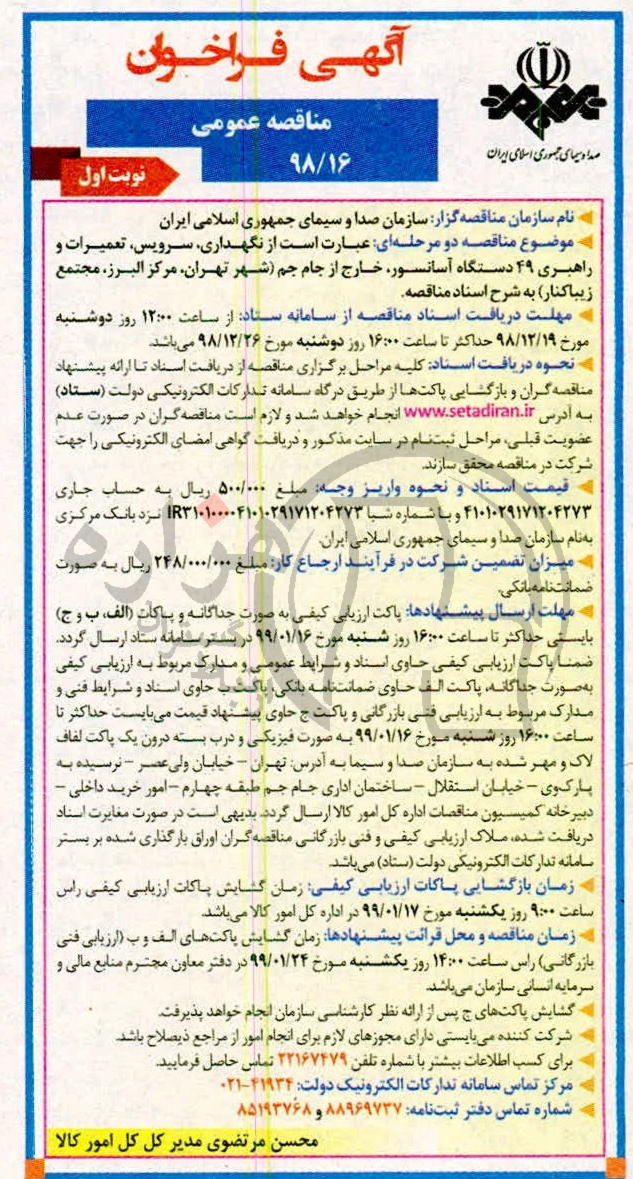 آگهی فراخوان
صدا و سیمای جمهوری اسلامی ایران
مناقصه عمومی
۹۸/۱۶
نوبت اول
نام سازمان مناقصه‌گزار: سازمان صدا و سیمای جمهوری اسلامی ایران
موضوع مناقصه دو مرحله‌ای: عبارت است از نگهداری، سرویس، تعمیرات و
راهبری ۴۹ دستگاه آسانسور، خارج از جام جم (شهر تهران، مرکز البرز، مجتمع
زیباکنار) به شرح اسناد مناقصه.
مهلت دریافت اسناد مناقصه از سامانه ستاد: از ساعت ۱۲:۰۰ روز دوشنبه
مورخ ۹۸/۱۲/۱۹ حداکثر تا ساعت ۱۶:۰۰ روز دوشنبه مورخ ۹۸/۱۲/۲۶ می‌باشد.
نحوه دریافت اسناد: کلیه مراحل برگزاری مناقصه از دریافت اسناد تا ارائه پیشنهاد
مناقصه‌گران و بازگشایی پاکت‌ها از طریق درگاه سامانه تدارکات الکترونیکی دولت (ستاد)
به آدرس www.setadiran.ir انجام خواهد شد و لازم است مناقصه‌گران در صورت عدم
عضویت قبلی، مراحل ثبت‌نام در سایت مذکور و دریافت گواهی امضای الکترونیکی را جهت
شرکت در مناقصه محقق سازند.
قیمت اسناد و نحوه واریز وجه: مبلغ ۵۰۰/۰۰۰ ریال به حساب جاری
۴۱۰۱۰۲۹۱۷۱۲۰۴۲۷۳ و با شماره شبا IR۳۱۰۱۰۰۰۰۴۱۰۱۰۲۹۱۷۱۲۰۴۲۷۳ نزد بانک مرکزی
به‌نام سازمان صدا و سیمای جمهوری اسلامی ایران.
میزان تضمین شرکت در فرآیند ارجاع کار: مبلغ ۲۴۸/۰۰۰/۰۰۰ ریال به صورت
ضمانت‌نامه‌بانکی.
مهلت ارسال پیشنهادها: پاکت ارزیابی کیفی به صورت جداگانه و پاکات (الف، ب و ج)
بایستی حداکثر تا ساعت ۱۶:۰۰ روز شنبه مورخ ۹۹/۰۱/۱۶ در بستر سامانه ستاد ارسال گردد.
ضمنا پاکت ارزیابی کیفی حاوی اسناد و شرایط عمومی و مدارک مربوط به ارزیابی کیفی
به‌صورت جداگانه، پاکت الف حاوی ضمانت‌نامه بانکی، پاکت ب حاوی اسناد و شرایط فنی و
مدارک مربوط به ارزیابی فنی بازرگانی و پاکت ج حاوی پیشنهاد قیمت می‌بایست حداکثر تا
ساعت ۱۶:۰۰ روز شنبه مورخ ۹۹/۰۱/۱۶ به صورت فیزیکی و درب بسته درون یک پاکت لفاف
لاک و مهر شده به سازمان صدا و سیما به آدرس: تهران – خیابان ولی‌عصر – نرسیده به
پارک‌وی – خیابان استقلال – ساختمان اداری جام جم طبقه چهارم – امور خرید داخلی –
دبیرخانه کمیسیون مناقصات اداره کل امور کالا ارسال گردد. بدیهی است در صورت مغایرت اسناد
دریافت شده، ملاک ارزیابی کیفی و فنی بازرگانی مناقصه‌گران اوراق بارگذاری شده بر بستر
سامانه تدارکات الکترونیکی دولت (ستاد) می‌باشد.
زمان بازگشایی پاکات ارزیابی کیفی: زمان گشایش پاکات ارزیابی کیفی راس
ساعت ۹:۰۰ روز یکشنبه مورخ ۹۹/۰۱/۱۷ در اداره کل امور کالا می‌باشد.
زمان مناقصه و محل قرائت پیشنهادها: زمان گشایش پاکت‌های الف و ب (ارزیابی فنی
بازرگانی) راس ساعت ۱۴:۰۰ روز یکشنبه مورخ ۹۹/۰۱/۲۴ در دفتر معاون محترم منابع مالی و
سرمایه انسانی سازمان می‌باشد.
گشایش پاکت‌های ج پس از ارائه نظر کارشناسی سازمان انجام خواهد پذیرفت.
شرکت کننده می‌بایستی دارای مجوزهای لازم برای انجام امور از مراجع ذیصلاح باشد.
برای کسب اطلاعات بیشتر با شماره تلفن ۲۲۱۶۷۴۷۹ تماس حاصل فرمایید.
مرکز تماس سامانه تدارکات الکترونیک دولت: ۴۱۹۳۴-۰۲۱
شماره تماس دفتر ثبت‌نامه: ۸۸۹۶۹۷۳۷ و ۸۵۱۹۳۷۶۸
محسن مرتضوی مدیر کل کل امور کالا